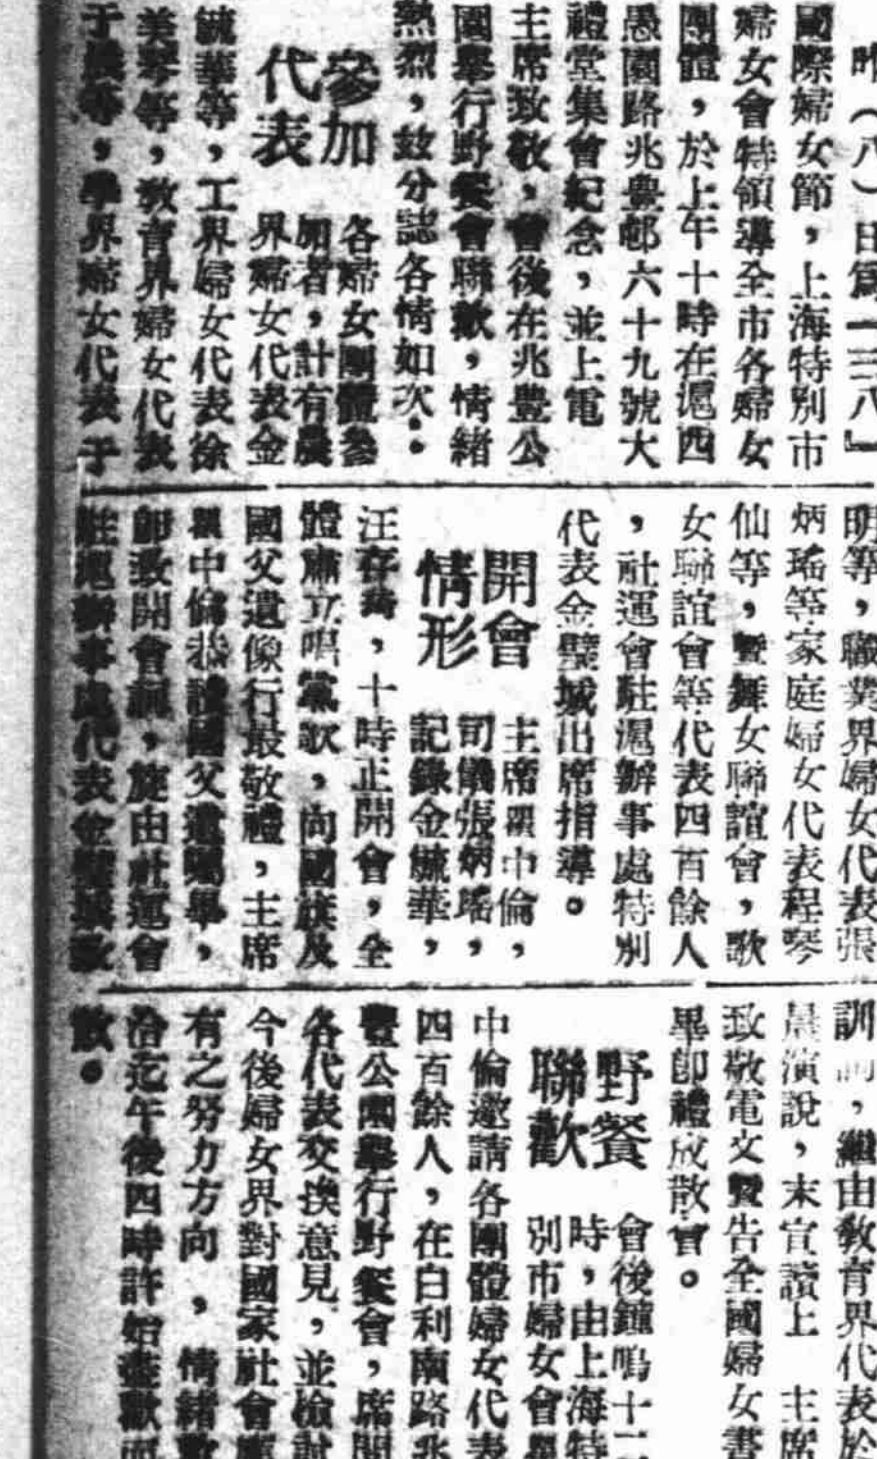 昨(八)日爲『三八』
國際婦女節,上海特別市
婦女會特領導全市各婦女
團體,於上午十時在滬四
愚園路兆豊邨六十九號大
禮堂集會紀念,並上電
主席致敬,會後在兆豐公
園舉行野餐會聯歡,情緒
熱烈,玆分誌各情如次:
參加
代表
各婦女團體參
加者,計有農
界婦女代表金
毓華等,工界婦女代表徐
美琴等,教育界婦女代表
于晨等,學界婦女代表于
明等,職業界婦女代表張
炳瑤等家庭婦女代表程琴
仙等,暨舞女聯誼會,歌
女聯誼會等代表四百餘人
,社運會駐滬辦事處特別
代表金璧城出席指導。
開會
情形
主席瞿中倫,
司儀張炳瑤,
記錄金毓華,
汪存,十時正開會,全
體肅立唱黨歌,向國旗及
國父遺像行最敬禮,主席
瞿中倫恭讀國父遺囑畢,
卽致開會詞,旋由社運會
駐滬辦事處代表金璧城致
訓詞,繼由敎育界代表於
晨演說,末宣讀上 主席
致敬電文暨告全國婦女書
畢卽禮成散會。
野餐
聯歡
會後鐘鳴十二
時,由上海特
別市婦女會瞿
中倫邀請各團體婦女代表
四百餘人,在白利南路兆
豐公園舉行野餐會,席間
各代表交換意見,並檢討
今後婦女界對國家社會應
有之努力方向,情緒歡
洽迄午後四時許始盡歡而
散。